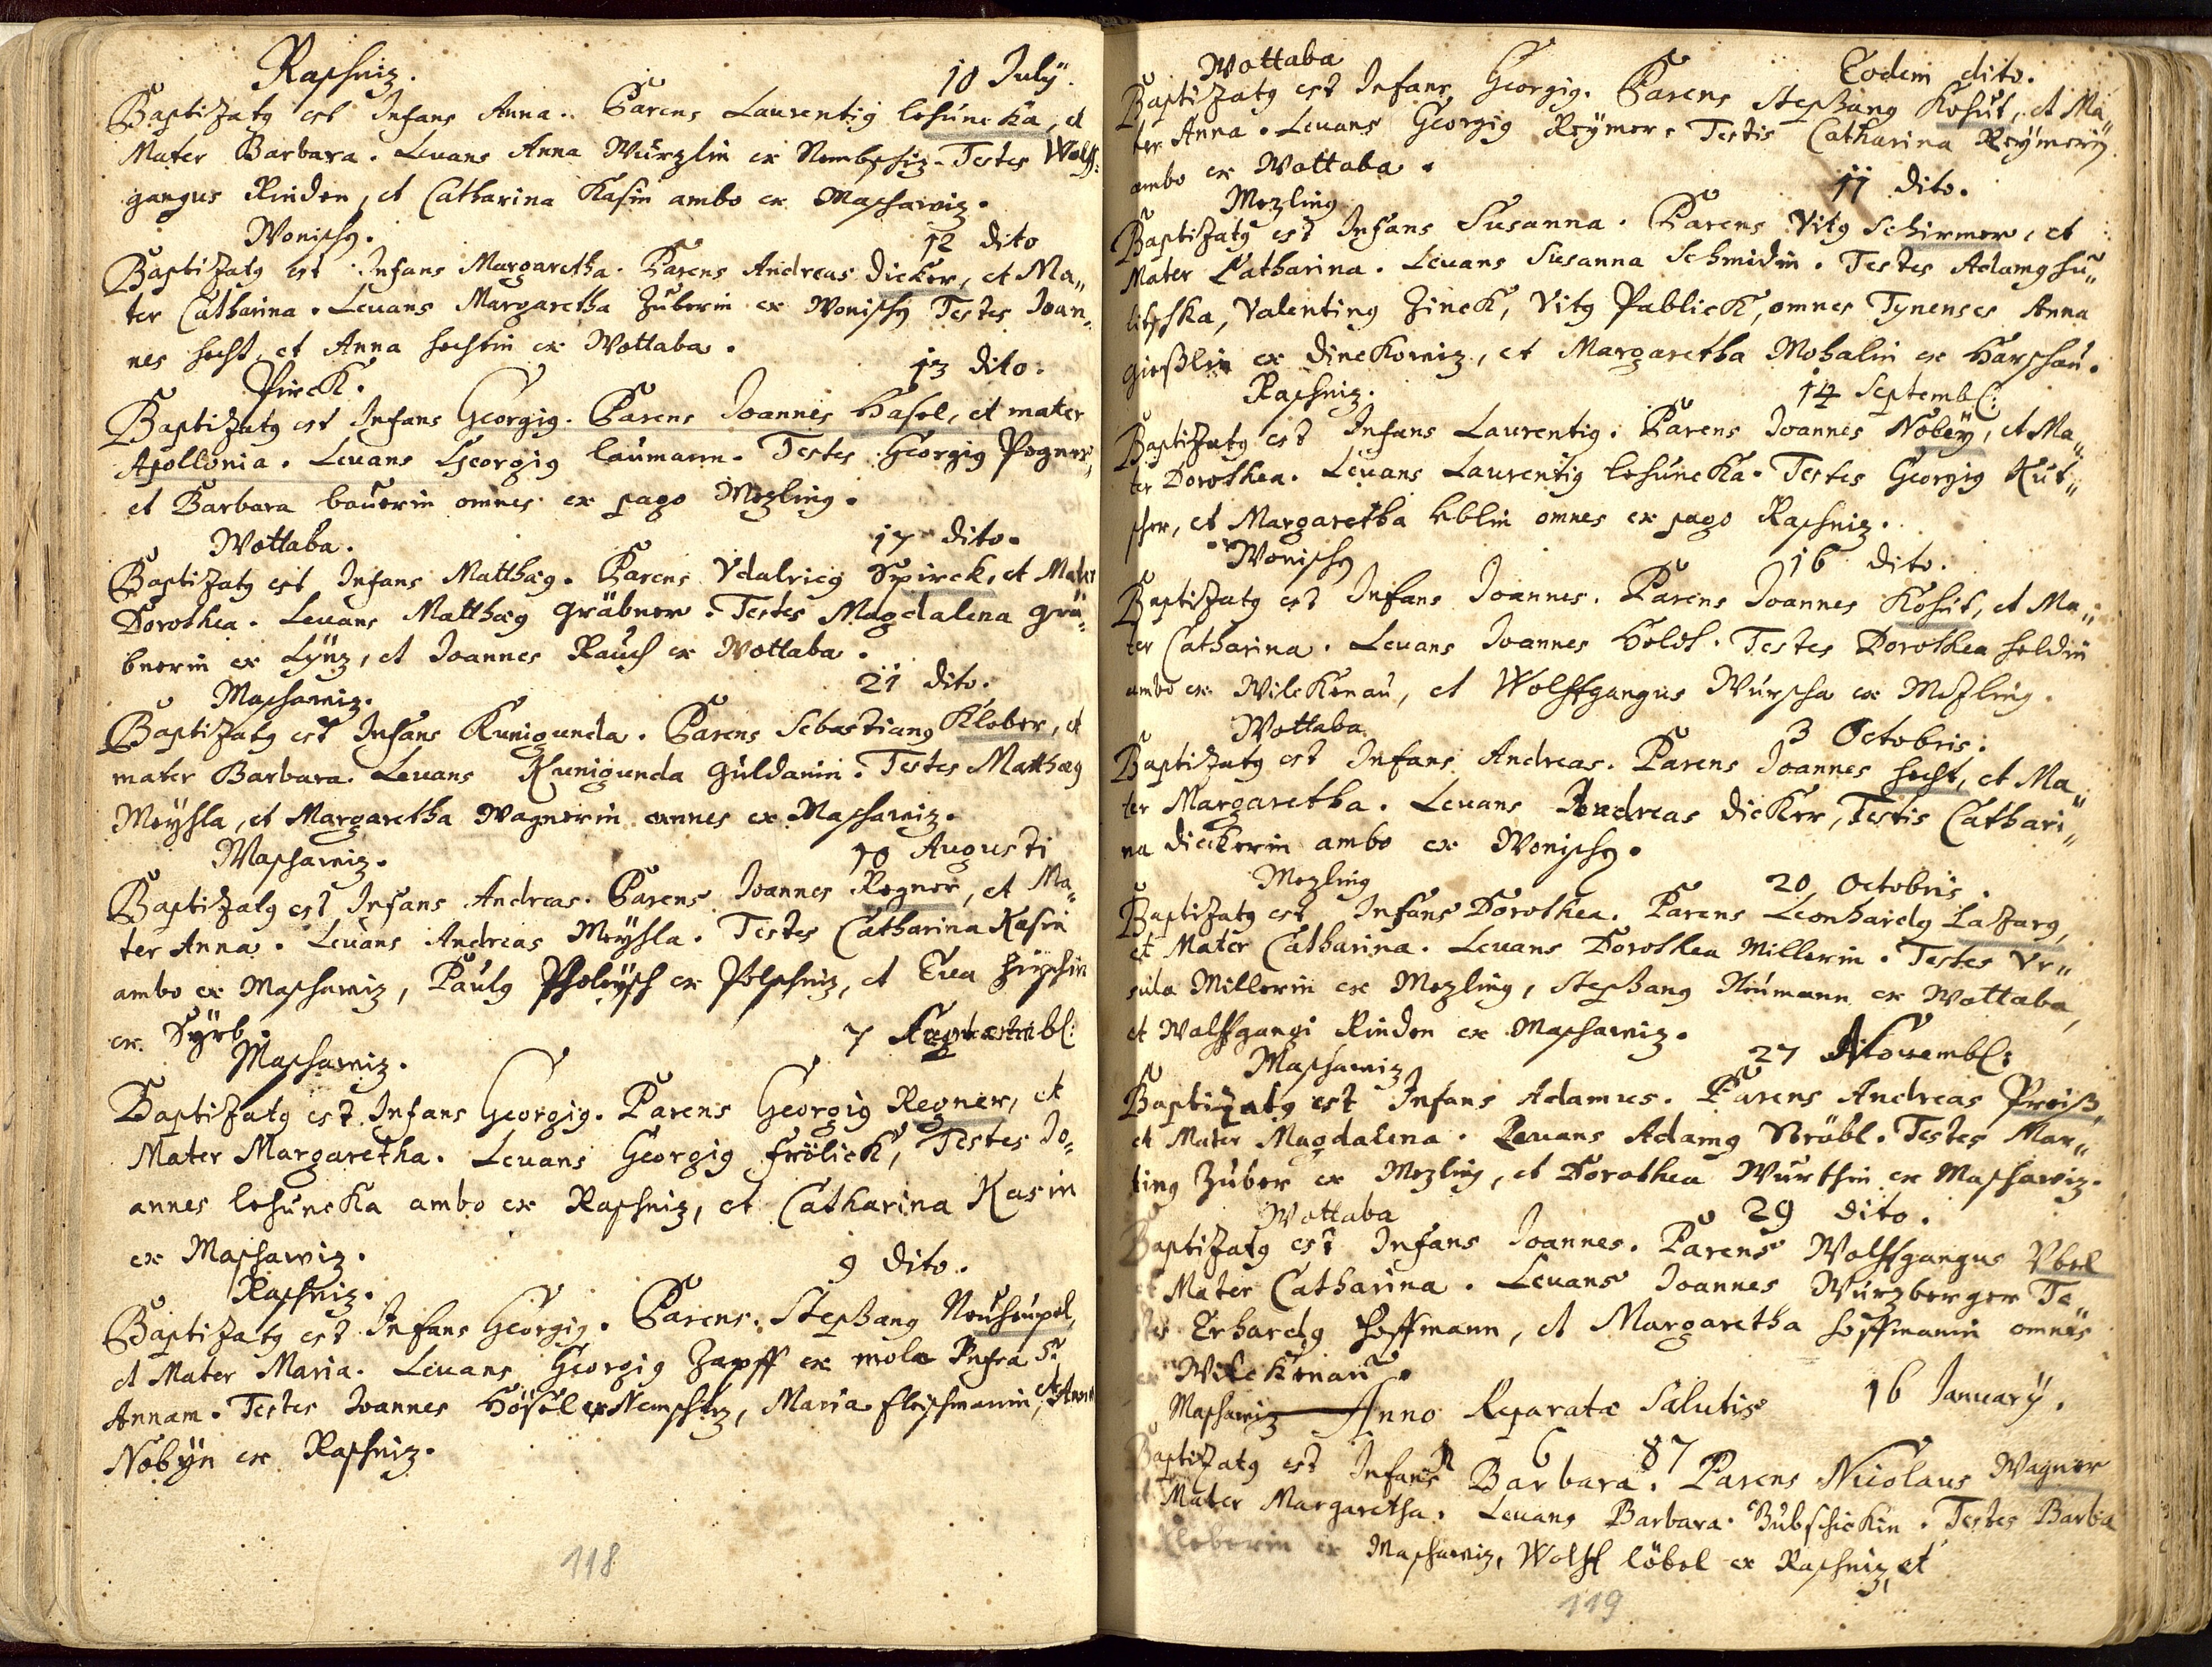 Raschniz.
10 July.
Baptizatus est Infans Anna. Parens Laurentius lehuncka, et
Mater Barbara. Leuans Anna Würzlin ex Nembschiz. Testes Wolff:
gangus Rinden, et Catharina Kasin ambo ex Maschawiz.
Wonischen.
12 dito
Baptizatus est Infans Margaretha. Parens Andreas Dicker, et Ma„
ter Catharina. Leuans Margaretha Zuberin ex Wonischen Testes Ioan„
nes hecht, et Anna hechtin ex Wottaba.
Pirck.
13 dito.
Baptizatus est Infans Georgius. Parens Ioannes Hasel, et mater
Apollonia. Leuans Georgius laumann. Testes Georgius Pogner,
et Barbara bauerin omnes ex pago Mezling.
Wottaba.
17 dito.
Baptizatus est Infans Matthæus. Parens Vdalricus Spirck, et Mater
Dorothea. Leuans Matthæus gräbner. Testes Magdalena grä„
bnerin ex Lynz, et Ioannes Rauch ex Wottaba.
Maschawiz.
21 dito.
Baptizatus est Infans Kunigunda. Parens Sebastianus Klober, et
mater Barbara. Leuans Kunigunda Guldanin. Testes Matthæus
Meyhla, et Margaretha Wagnerin omnes ex Maschawiz.
Maschawiz.
10 Augusti
Baptizatus est Infans Andreas. Parens Ioannes Regner, et Ma„
ter Anna. Leuans Andreas Meyhla. Testes Catharina Kasin
ambo ex Maschawiz, Paulus ex Polschniz, et Eua
ex Syrb.
Maschawiz.
7 Septembr:
Baptizatus est Infans Georgius. Parens Georgius Regner, et
Mater Margaretha. Leuans Georgius frölick, Testes Io„
annes lehuncka ambo ex Raschniz, et Catharina Kasin
ex Maschawiz.
Raschniz.
9 dito.
Baptizatus est Infans Georgius. Parens Stephanus Neuheupel,
et Mater Maria. Leuans Georgius Zapff ex mola Infra St
Annam. Testes Ioannes Höfel ex Nemschiz, Maria fleischmanin, et Anna
Nobÿn ex Raschniz.
118
Wottaba
Eodem dito.
Baptizatus est Infans Georgius. Parens Stephanus Kohut, et Ma„
ter Anna. Leuans Georgius Reymer. Testis Catharina Reymerin
ambo ex Wottaba.
Mezling
11 dito.
Baptizatus est Infans Susanna. Parens Vitus Schirmer, et
Mater Catharina. Leuans Susanna Schmidin. Testes Adamus hu„
litschka, Valentinus Zinck, Vitus Pablick, omnes Tynenses Anna
gießlin ex Dinckowiz, et Margaretha Mohalin ex Harschau.
Raschniz.
14 Septembr:
Baptizatus est Infans Laurentius. Parens Ioannes Nobey, et Ma„
ter Dorothea. Leuans Laurentius lehuncka. Testes Georgius Kut„
scher, et Margaretha leblin omnes ex pago Raschniz.
Wonischen
16 dito.
Baptizatus est Infans Ioannes. Parens Ioannes Kohut, et Ma„
ter Catharina. Leuans Ioannes Heldt. Testes Dorothea heldin
ambo ex Wilckenau, et Wolffgangus Wurscha ex Mezling.
Wottaba
3 Octobris.
Baptizatus est Infans Andreas. Parens Ioannes hecht, et Ma„
ter Margaretha. Leuans Andreas Dicker, Testis Cathari„
na dickerin ambo ex Wonischen.
Mezling
20 Octobris.
Baptizatus est Infans Dorothea. Parens Leonhardus Lazarus,
et Mater Catharina. Leuans Dorothea Millerin. Testes Vr„
sula Millerin ex Mezling, Stephanus Neumann ex Wottaba,
et Wolffgangi Rinden ex Maschawiz.
Maschawiz
27 Nouembr:
Baptizatus est Infans Adamus. Parens Andreas Preiß,
et Mater Magdalena. Leuans Adamus Ströbl. Testes Mar„
tinus Zuber ex Mezling, et Dorothea Wurthin ex Maschawiz.
Wottaba
29 dito.
Baptizatus est Infans Ioannes. Parens Wolffgangus Vbel
et Mater Catharina. Leuans Ioannes Würzberger Te„
stes Erhardus hoffmann, et Margaretha hoffmanin omnes
ex Wilckenau.
Maschawiz Anno Reparatæ Salutis
16 January.
1687
Baptizatus est Infans Barbara. Parens Nicolaus Wagner
et Mater Margaretha. Leuans Barbara Bubschickin. Testes Barba
Kleberin ex Maschawiz, Wolff löbel ex Raschniz, et
119